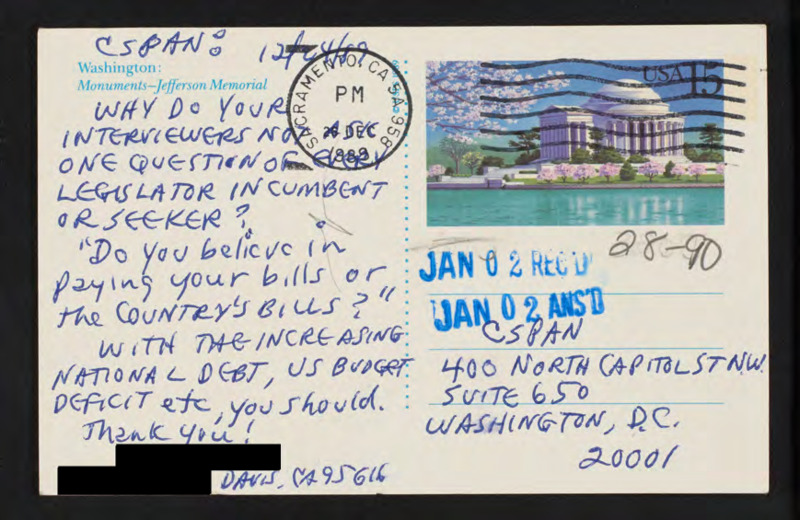 CSPAN: 12/24/89
Washington:
Monuments—Jefferson Memorial
WHY DO YOUR
INTERVIEWERS NOT ASK
ONE QUESTION OF EVERY
LEGISLATOR INCUMBENT
OR SEEKER?
"Do you believe in
paying your bills or
the COUNTRY'S BILLS?"
WITH THE INCREASING
NATIONAL DEBT, US BUDGET
DEFICIT etc, you should.
Thank you!
DAVIS, CA 95616
SACRAMENTO, CA 958
PM
DEC
1989
USA 15
28-90
JAN 02 REC'D
JAN 02 ANS'D
CSPAN
400 NORTH CAPITOL ST N.W.
SUITE 650
WASHINGTON, D.C.
20001